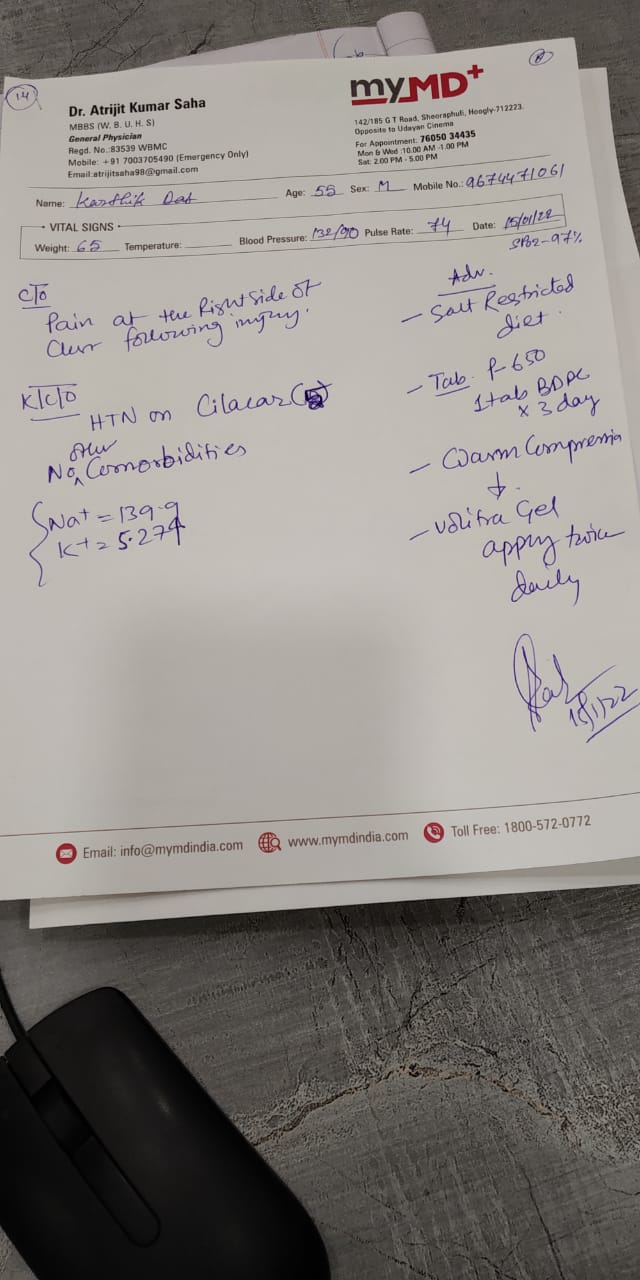 14
Dr. Atrijit Kumar Saha
MBBS (W. B. U. H. S)
General Physician
Regd. No.:83539 WBMC
Mobile: +91 7003705490 (Emergency Only)
Email:atrijitsaha98@gmail.com
myMD+
142/185 G T Road, Sheoraphuli, Hoogly-712223.
Opposite to Udayan Cinema
For Appointment: 76050 34435
Mon & Wed :10.00 AM -1.00 PM
Sat: 2.00 PM - 5.00 PM
Name: Karthik Das Age: 55 Sex: M Mobile No.: 9674471061
VITAL SIGNS
Weight: 65 Temperature: Blood Pressure: 132/90 Pulse Rate: 74 Date: 15/01/22
SPO2-97%
C/O
Pain at the Right side of
following injury.
K/C/O
HTN on Cilacar (5)
other
No Comorbidities
Na+ = 139.9
K+ = 5.274
Adv.
- Salt Restricted
diet.
- Tab. P-650
1 tab BDPC
x 3 day
- Warm
- Volitra Gel
apply twice
daily
15/1/22
Email: info@mymdindia.com www.mymdindia.com Toll Free: 1800-572-0772